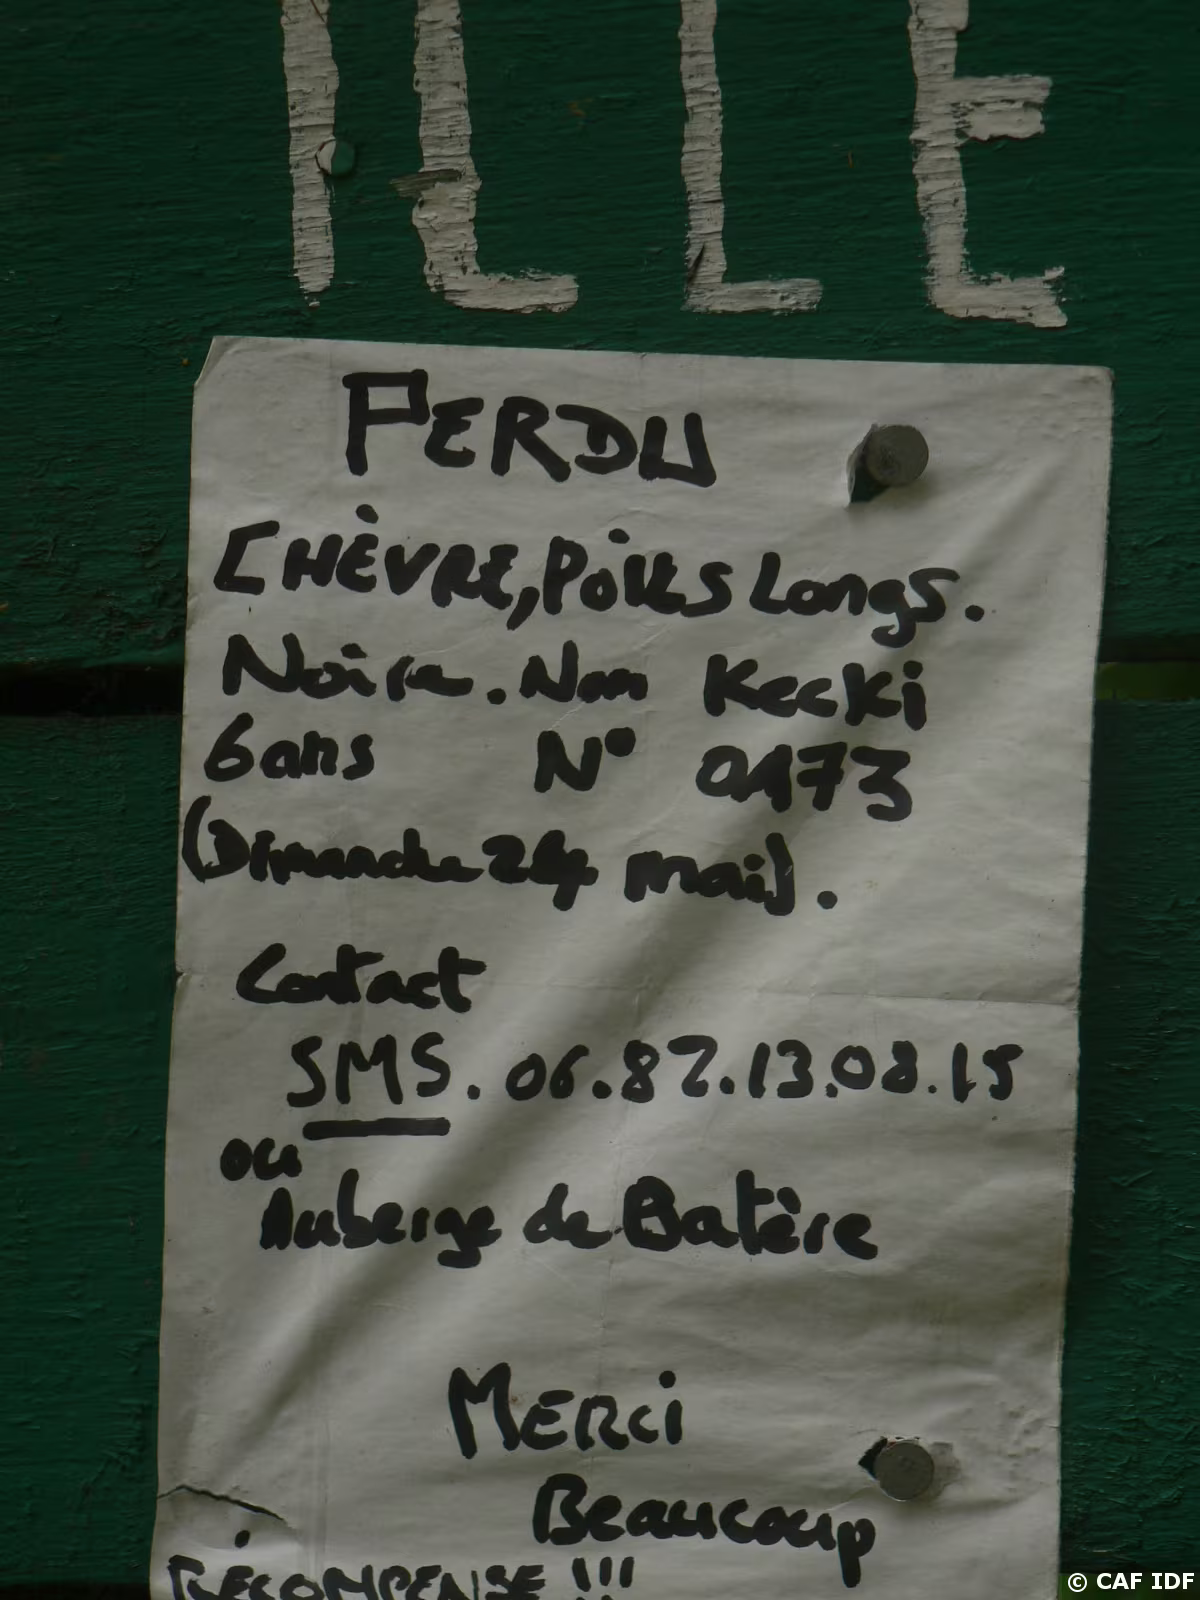 ILLE
PERDU
CHÈVRE, POILS Longs.
Noire. Nom Kecki
6 ans N° 0173
(Dimanche 24 mai).
Contact
SMS. 06.82.13.08.15
ou
Auberge de Batère
MERCi
Beaucoup
RÉCOMPENSE !!!
© CAF IDF